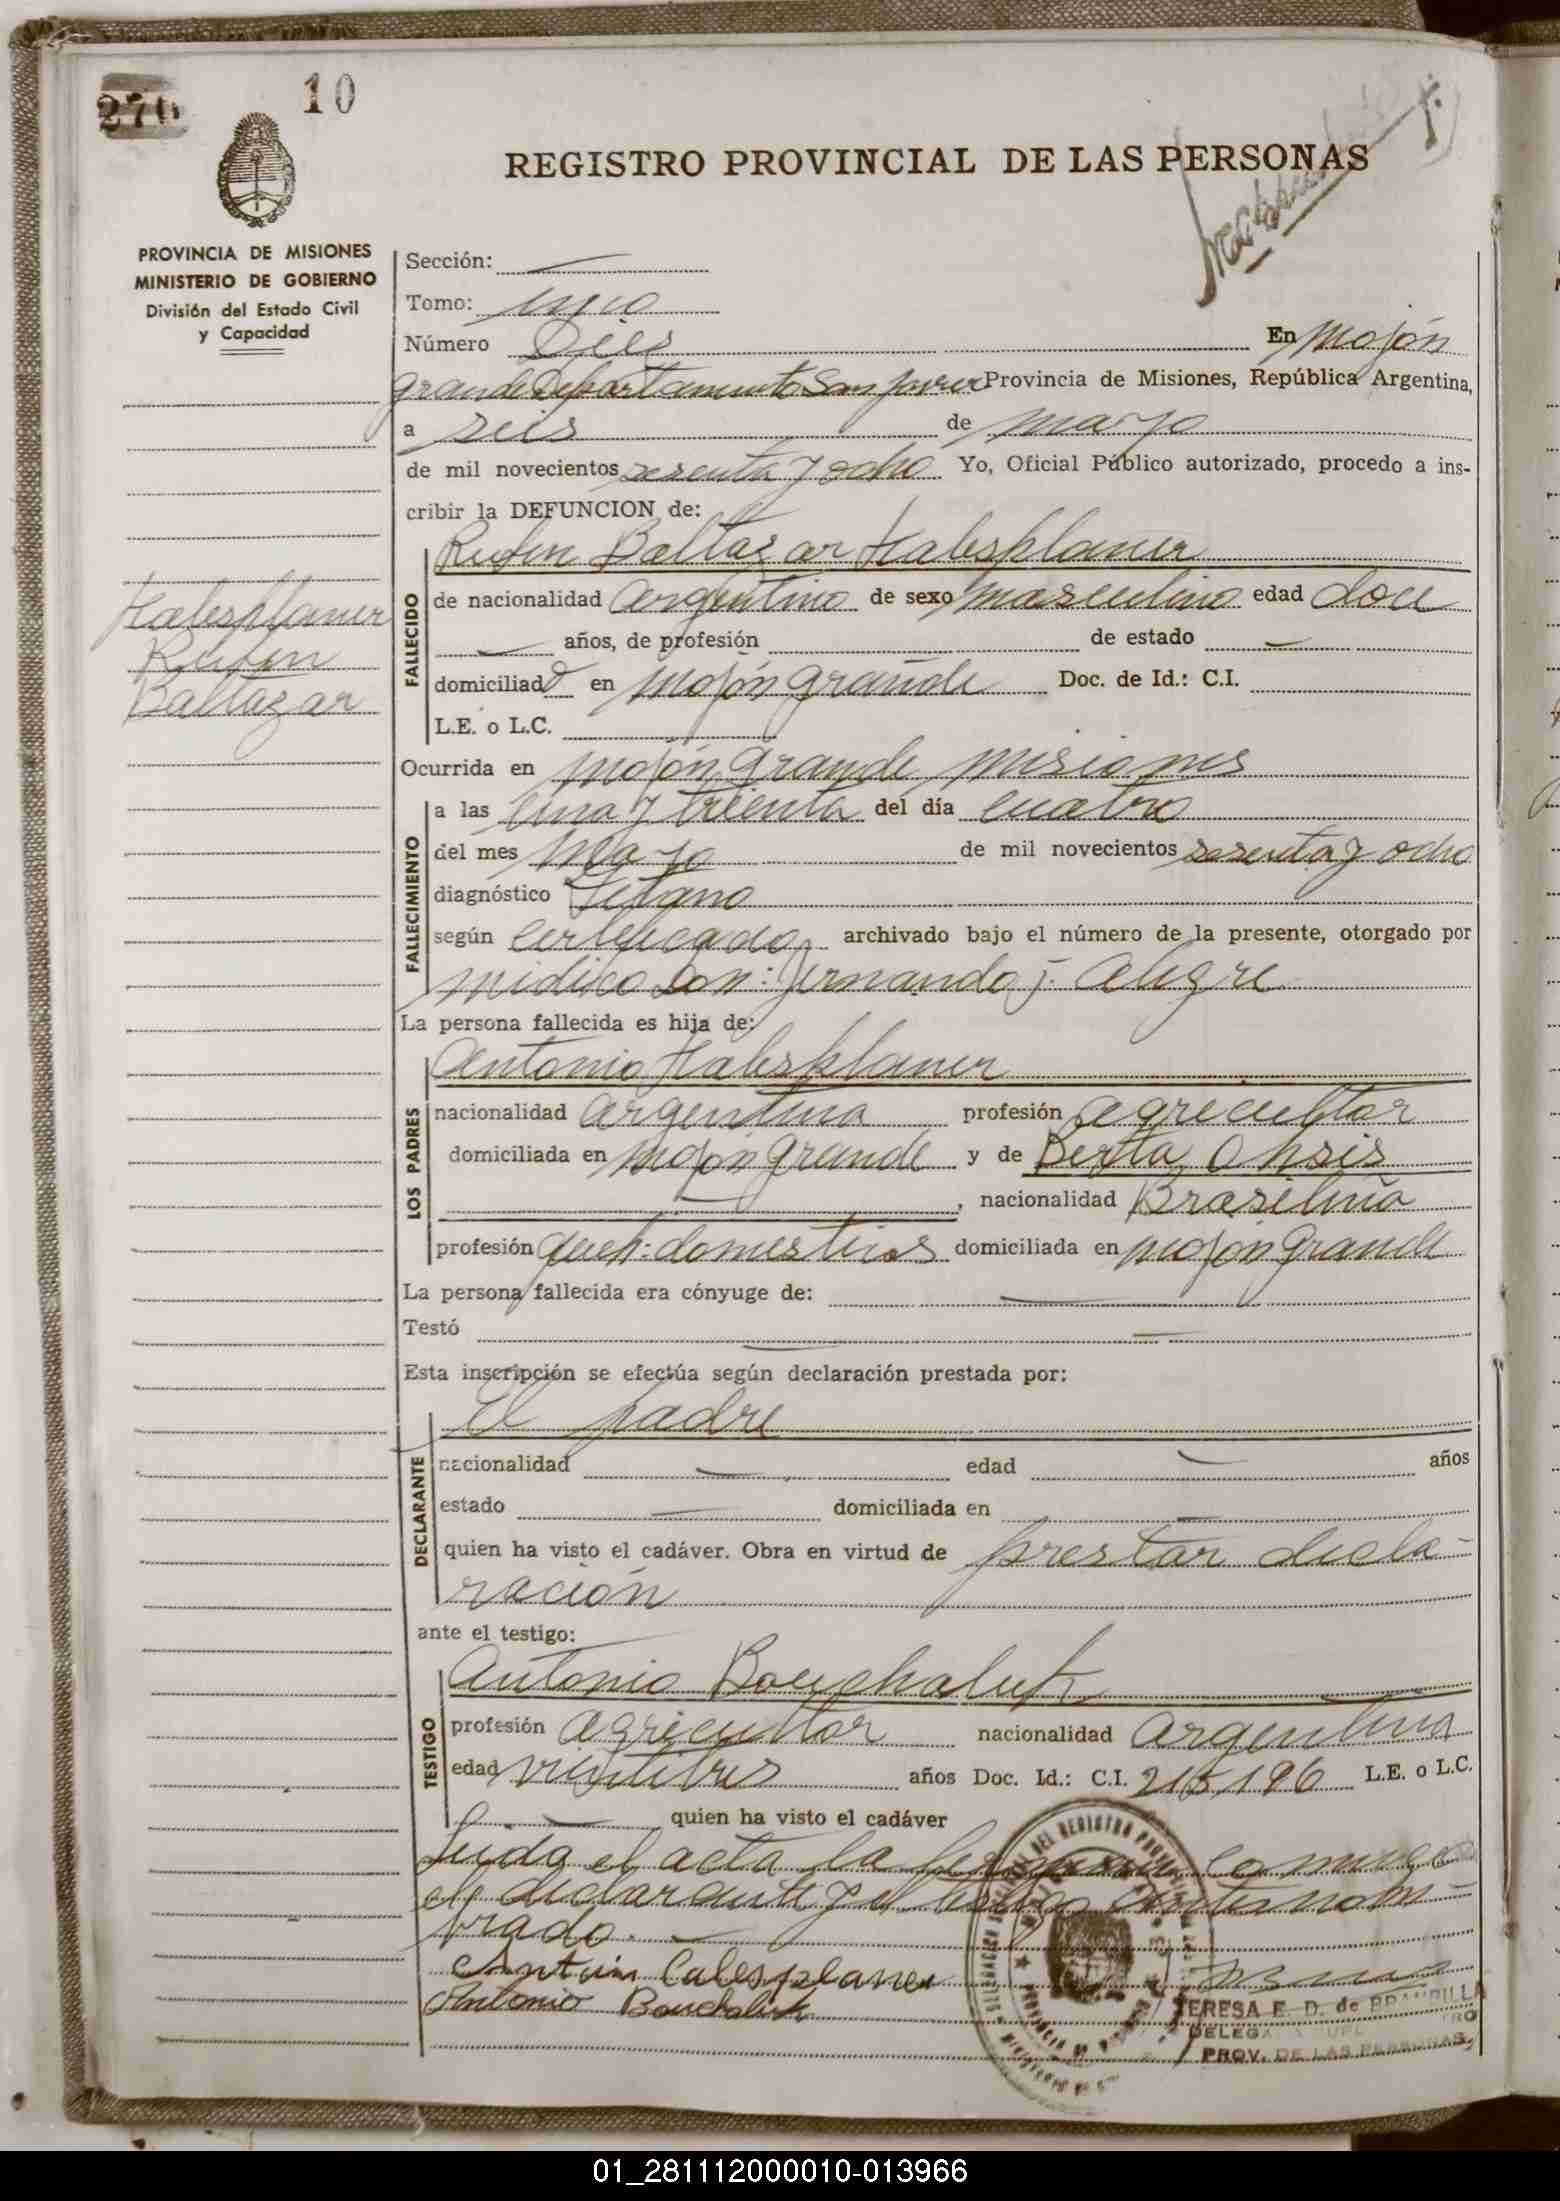 270 10
REGISTRO PROVINCIAL DE LAS PERSONAS
PROVINCIA DE MISIONES
MINISTERIO DE GOBIERNO
División del Estado Civil
y Capacidad
Sección:
Tomo:
Número Diez En Mojón
grande Departamento San Javier Provincia de Misiones, República Argentina,
a seis de mayo
de mil novecientos sesenta y ocho Yo, Oficial Público autorizado, procedo a ins-
cribir la DEFUNCION de:
Rubén Baltazar Halesplaner
Halesplaner
Rubén
Baltazar
FALLECIDO
de nacionalidad argentino de sexo masculino edad doce
años, de profesión de estado
domiciliado en Mojón grande Doc. de Id.: C.I.
L.E. o L.C.
Ocurrida en Mojón grande Misiones
FALLECIMIENTO
a las una y treinta del día cuatro
del mes Mayo de mil novecientos sesenta y ocho
diagnóstico Tétano
según certificado archivado bajo el número de la presente, otorgado por
médico Don: Fernando J. Alegre
La persona fallecida es hija de:
Antonio Halesplaner
LOS PADRES
nacionalidad argentina profesión agricultor
domiciliada en Mojón grande y de Berta
, nacionalidad Brasileña
profesión queh: domesticos domiciliada en Mojón grande
La persona fallecida era cónyuge de:
Testó
Esta inscripción se efectúa según declaración prestada por:
El padre
DECLARANTE
nacionalidad edad años
estado domiciliada en
quien ha visto el cadáver. Obra en virtud de prestar decla-
ración
ante el testigo:
Antonio Bouchaluk
TESTIGO
profesión agricultor nacionalidad argentina
edad veintitres años Doc. Id.: C.I. 215196 L.E. o L.C.
quien ha visto el cadáver
Leida el acta la firman conmigo
el declarante y el testigo antenom-
brado.
Antonio Bouchaluk
TERESA E. D. de BRAMBILLA
PROV. DE LAS PERSONAS
01_281112000010-013966